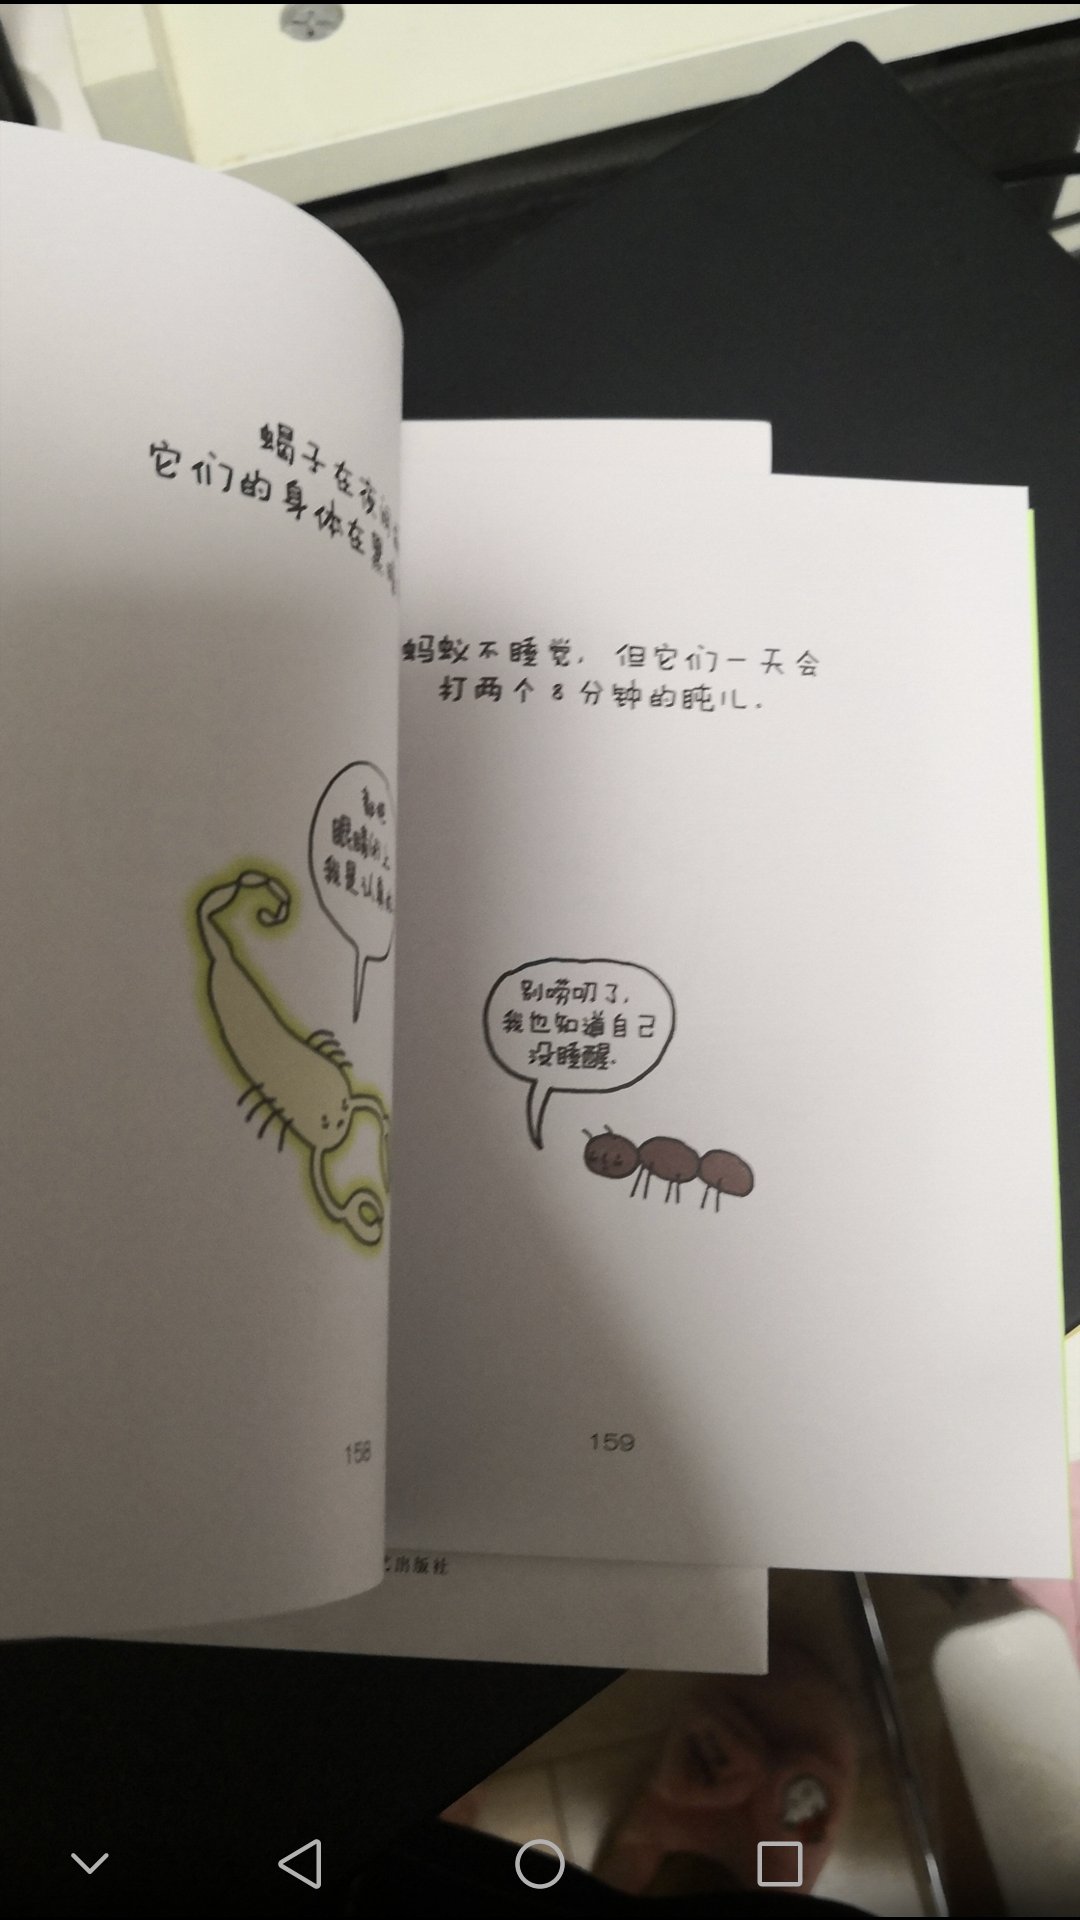 蝎子在夜间
它们的身体在黑
眼睛闭上
我是认真
158
蚂蚁不睡觉，但它们一天会
打两个8分钟的盹儿.
别唠叨了，
我也知道自己
没睡醒.
159
出版社